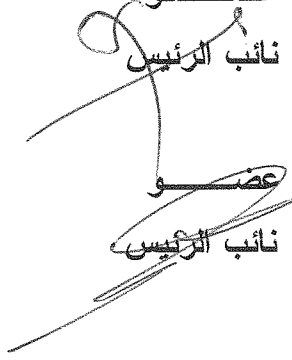 نائب الرئيس
عضـــــــو
نائب الرئيس